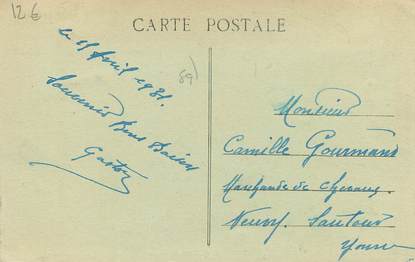 12 €
CARTE POSTALE
89)
le 15 Avril 1931.
Souvenir Bons Baisers
Gaston
Monsieur
Camille Gourmand
Marchand de Chevaux
Neuvy. Sautour
Yonne